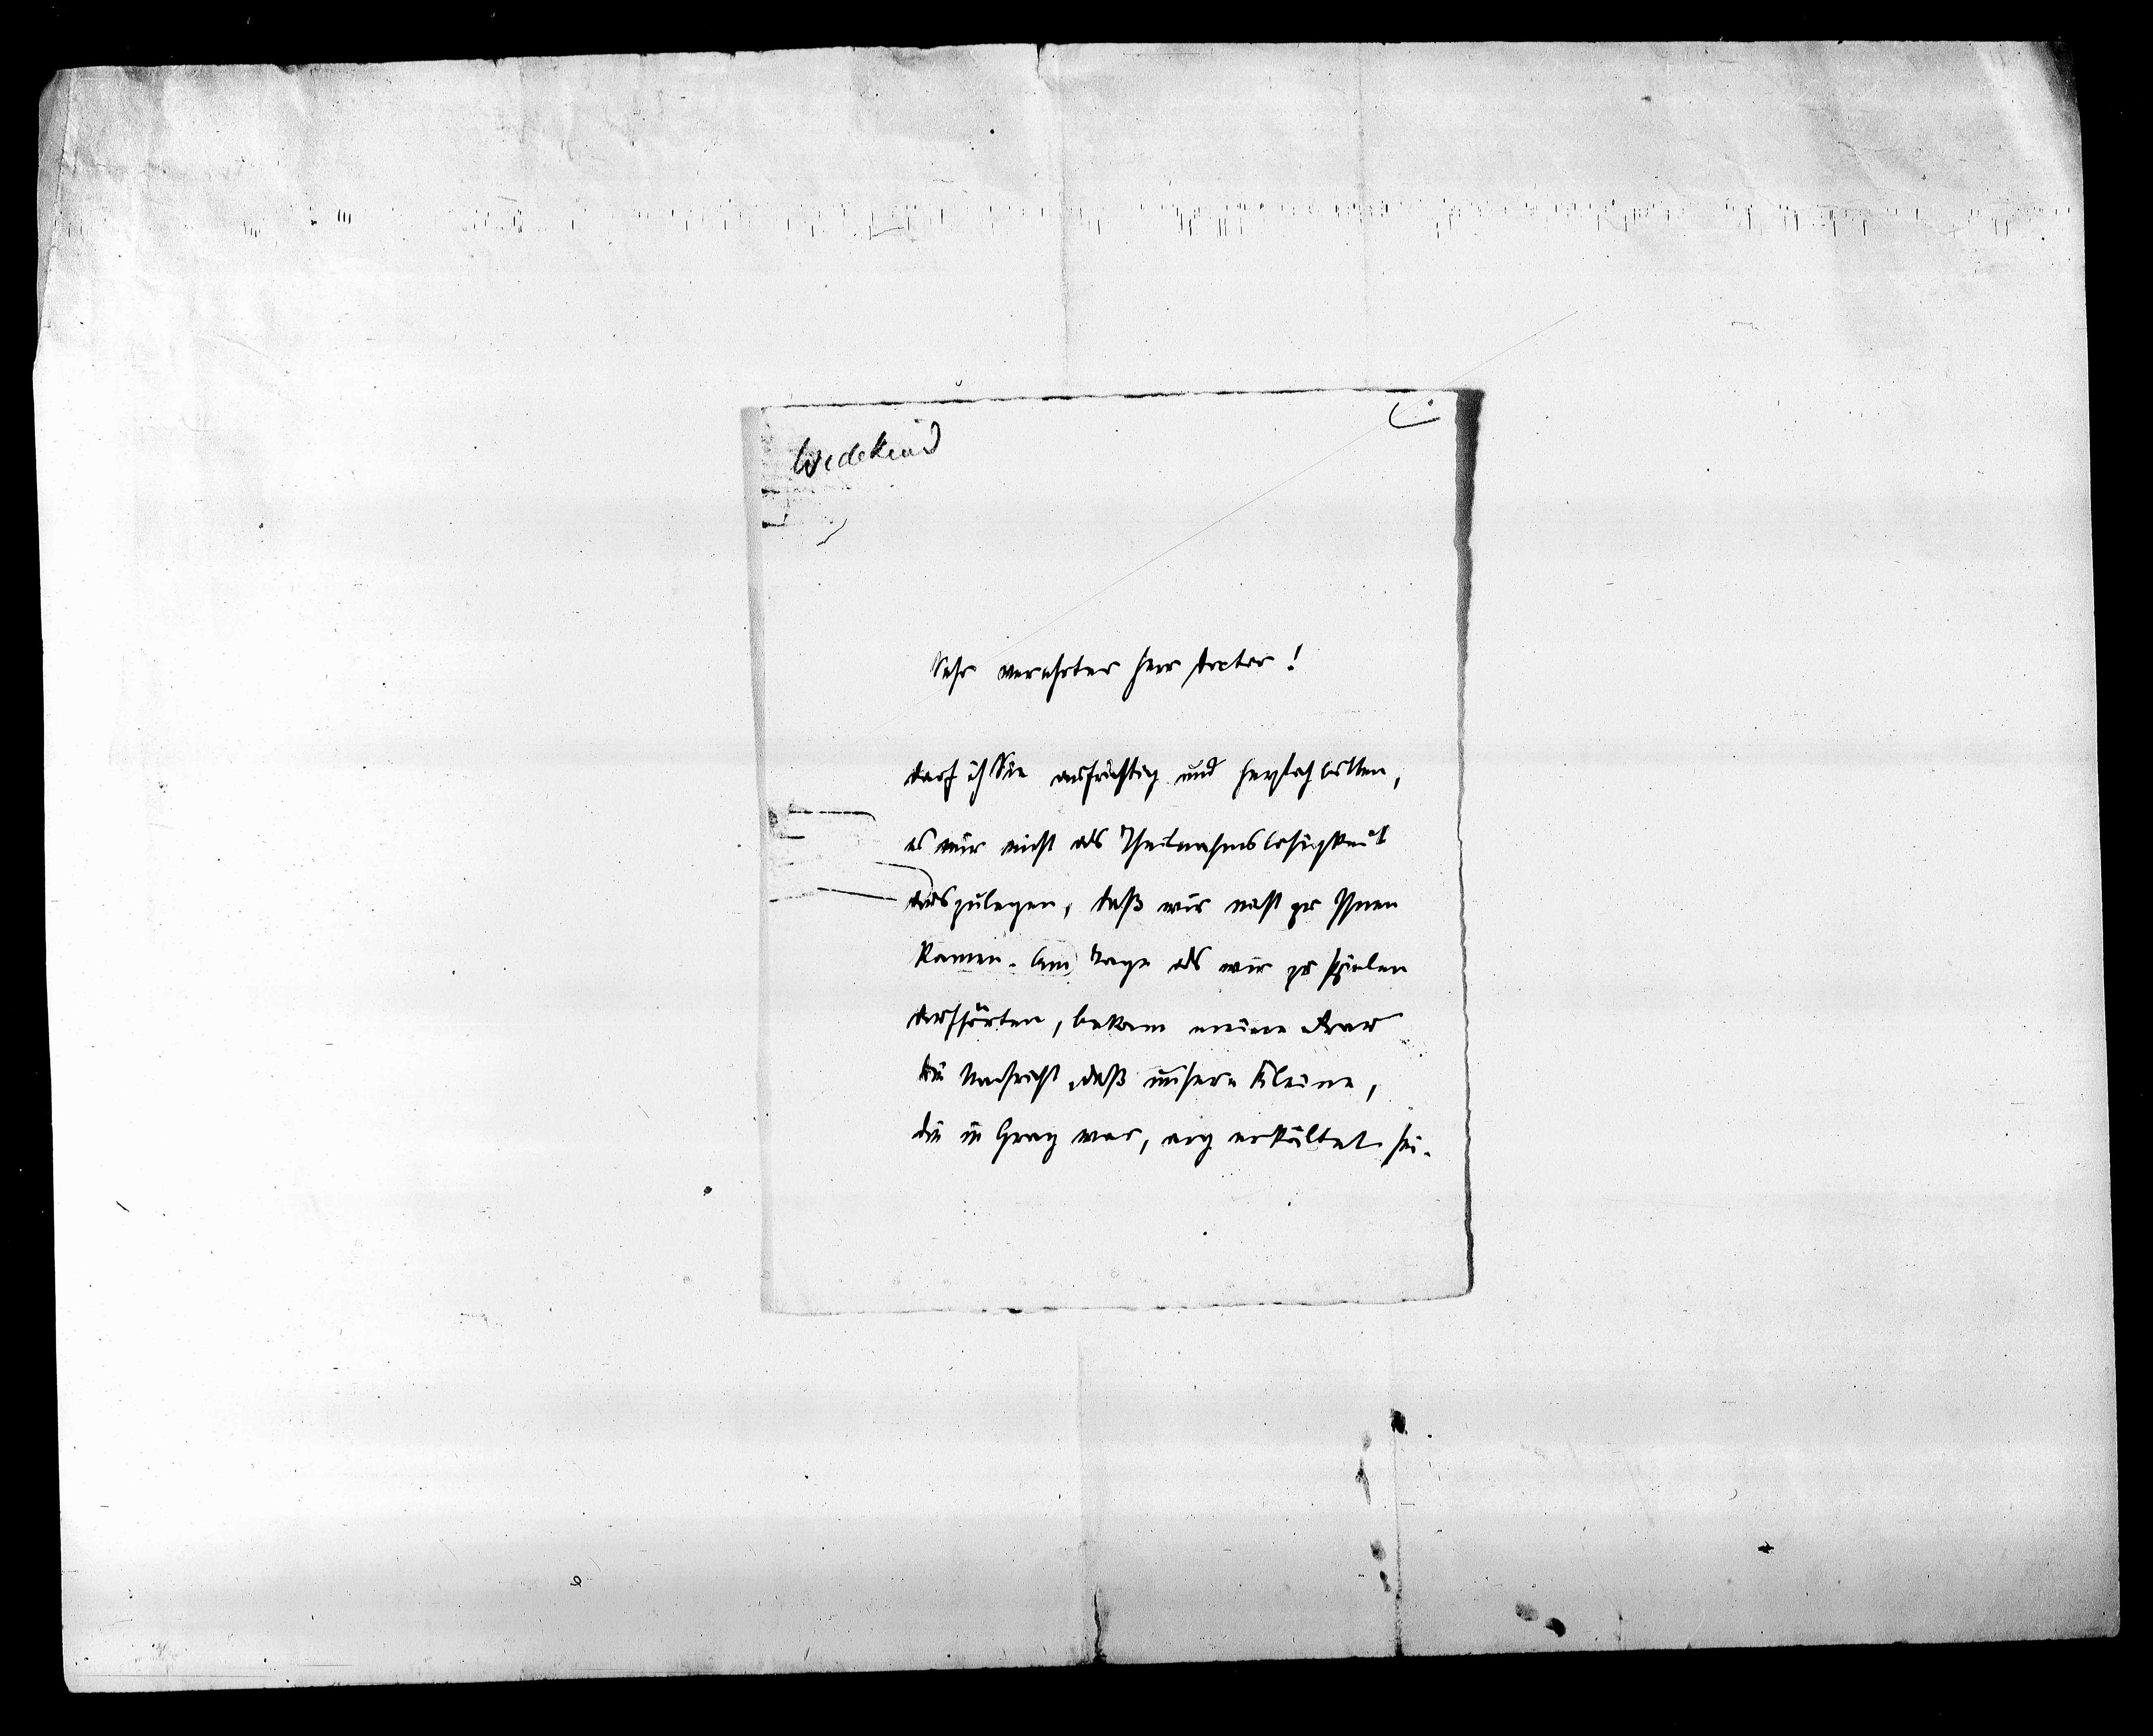 Wedekind
Sehr verehrter Herr Doctor!
darf ich Sie aufrichtig und herzlich bitten,
es mir nicht als Theilnahmslosigkeit
auszulegen, daß wir nicht zu Ihnen
kamen. Am Tage als wir zu spielen
aufhörten, bekam meine Frau
die Nachricht, daß unsere Kleine,
die in Graz war, arg erkältet sei.